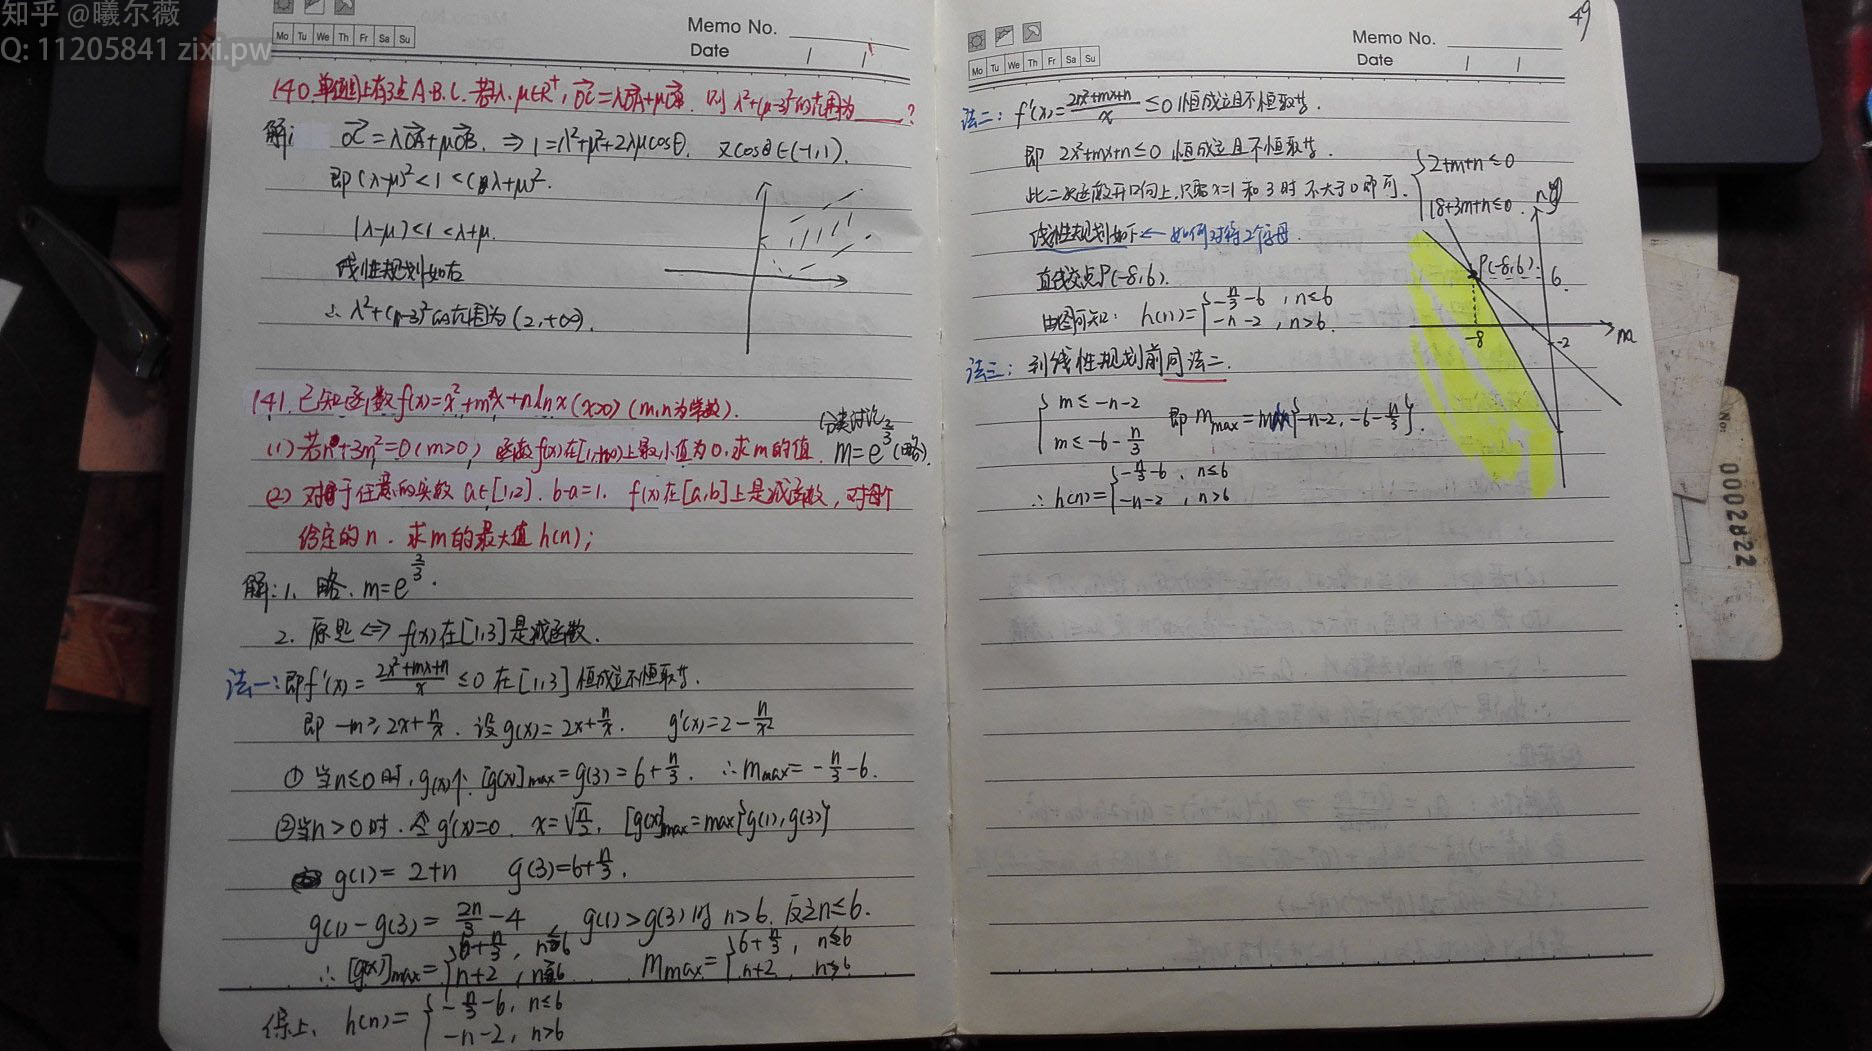 知乎 @曦尔薇
Q: 11205841 zixi.pw
Mo Tu We Th Fr Sa Su
Memo No.
Date / /
140.单位圆上有3点A.B.C.若λ.μ∈R⁺, OC=λOA+μOB. 则λ²+(μ-3)²的范围为____?
解: OC=λOA+μOB. ⇒ 1=λ²+μ²+2λμcosθ. 又cosθ∈(-1,1).
即(λ-μ)²<1<(λ+μ)².
|λ-μ|<1<λ+μ.
线性规划如右
∴ λ²+(μ-3)²的范围为(2,+∞).
141.已知函数f(x)=x²+mx+nlnx(x>0)(m,n为常数).
分类讨论
(1)若n+3m²=0(m>0) 函数f(x)在[1,+∞)上最小值为0.求m的值. m=e^(2/3)(略).
(2)对于任意的实数a∈[1,2]. b-a=1. f(x)在[a,b]上是减函数,对每个
给定的n.求m的最大值h(n);
解:1、略. m=e^(2/3).
2. 原题⇔f(x)在[1,3]是减函数.
法一:即f'(x)=(2x²+mx+n)/x ≤0在[1,3]恒成立不恒取等.
即 -m≥2x+n/x. 设g(x)=2x+n/x. g'(x)=2-n/x²
①当n≤0时,g(x)↑. [g(x)]max=g(3)=6+n/3. ∴mmax=-n/3-6.
②当n>0时.令g'(x)=0. x=√(n/2). [g(x)]max=max{g(1),g(3)}
g(1)=2+n g(3)=6+n/3.
g(1)-g(3)=2n/3-4 g(1)>g(3)时 n>6. 反之n≤6.
∴[g(x)]max={6+n/3, n≤6 mmax={6+n/3, n≤6
n+2, n>6 n+2, n>6
综上、h(n)={-n/3-6, n≤6
-n-2, n>6
49
Mo Tu We Th Fr Sa Su
Memo No.
Date / /
法二: f'(x)=(2x²+mx+n)/x ≤0恒成立且不恒取等.
即 2x²+mx+n≤0恒成立且不恒取等.
此二次函数开口向上,只需x=1和3时不大于0即可. {2+m+n≤0
18+3m+n≤0.
线性规划如下← 如何对待2个字母.
直线交点P(-8,6).
由图可知: h(n)={-n/3-6, n≤6
-n-2, n>6.
P(-8,6)
6
-8
-2
m
法三: 到线性规划前同法二.
{m≤-n-2
m≤-6-n/3 即mmax=min{-n-2,-6-n/3}.
∴h(n)={-n/3-6, n≤6
-n-2, n>6
No:
0002822